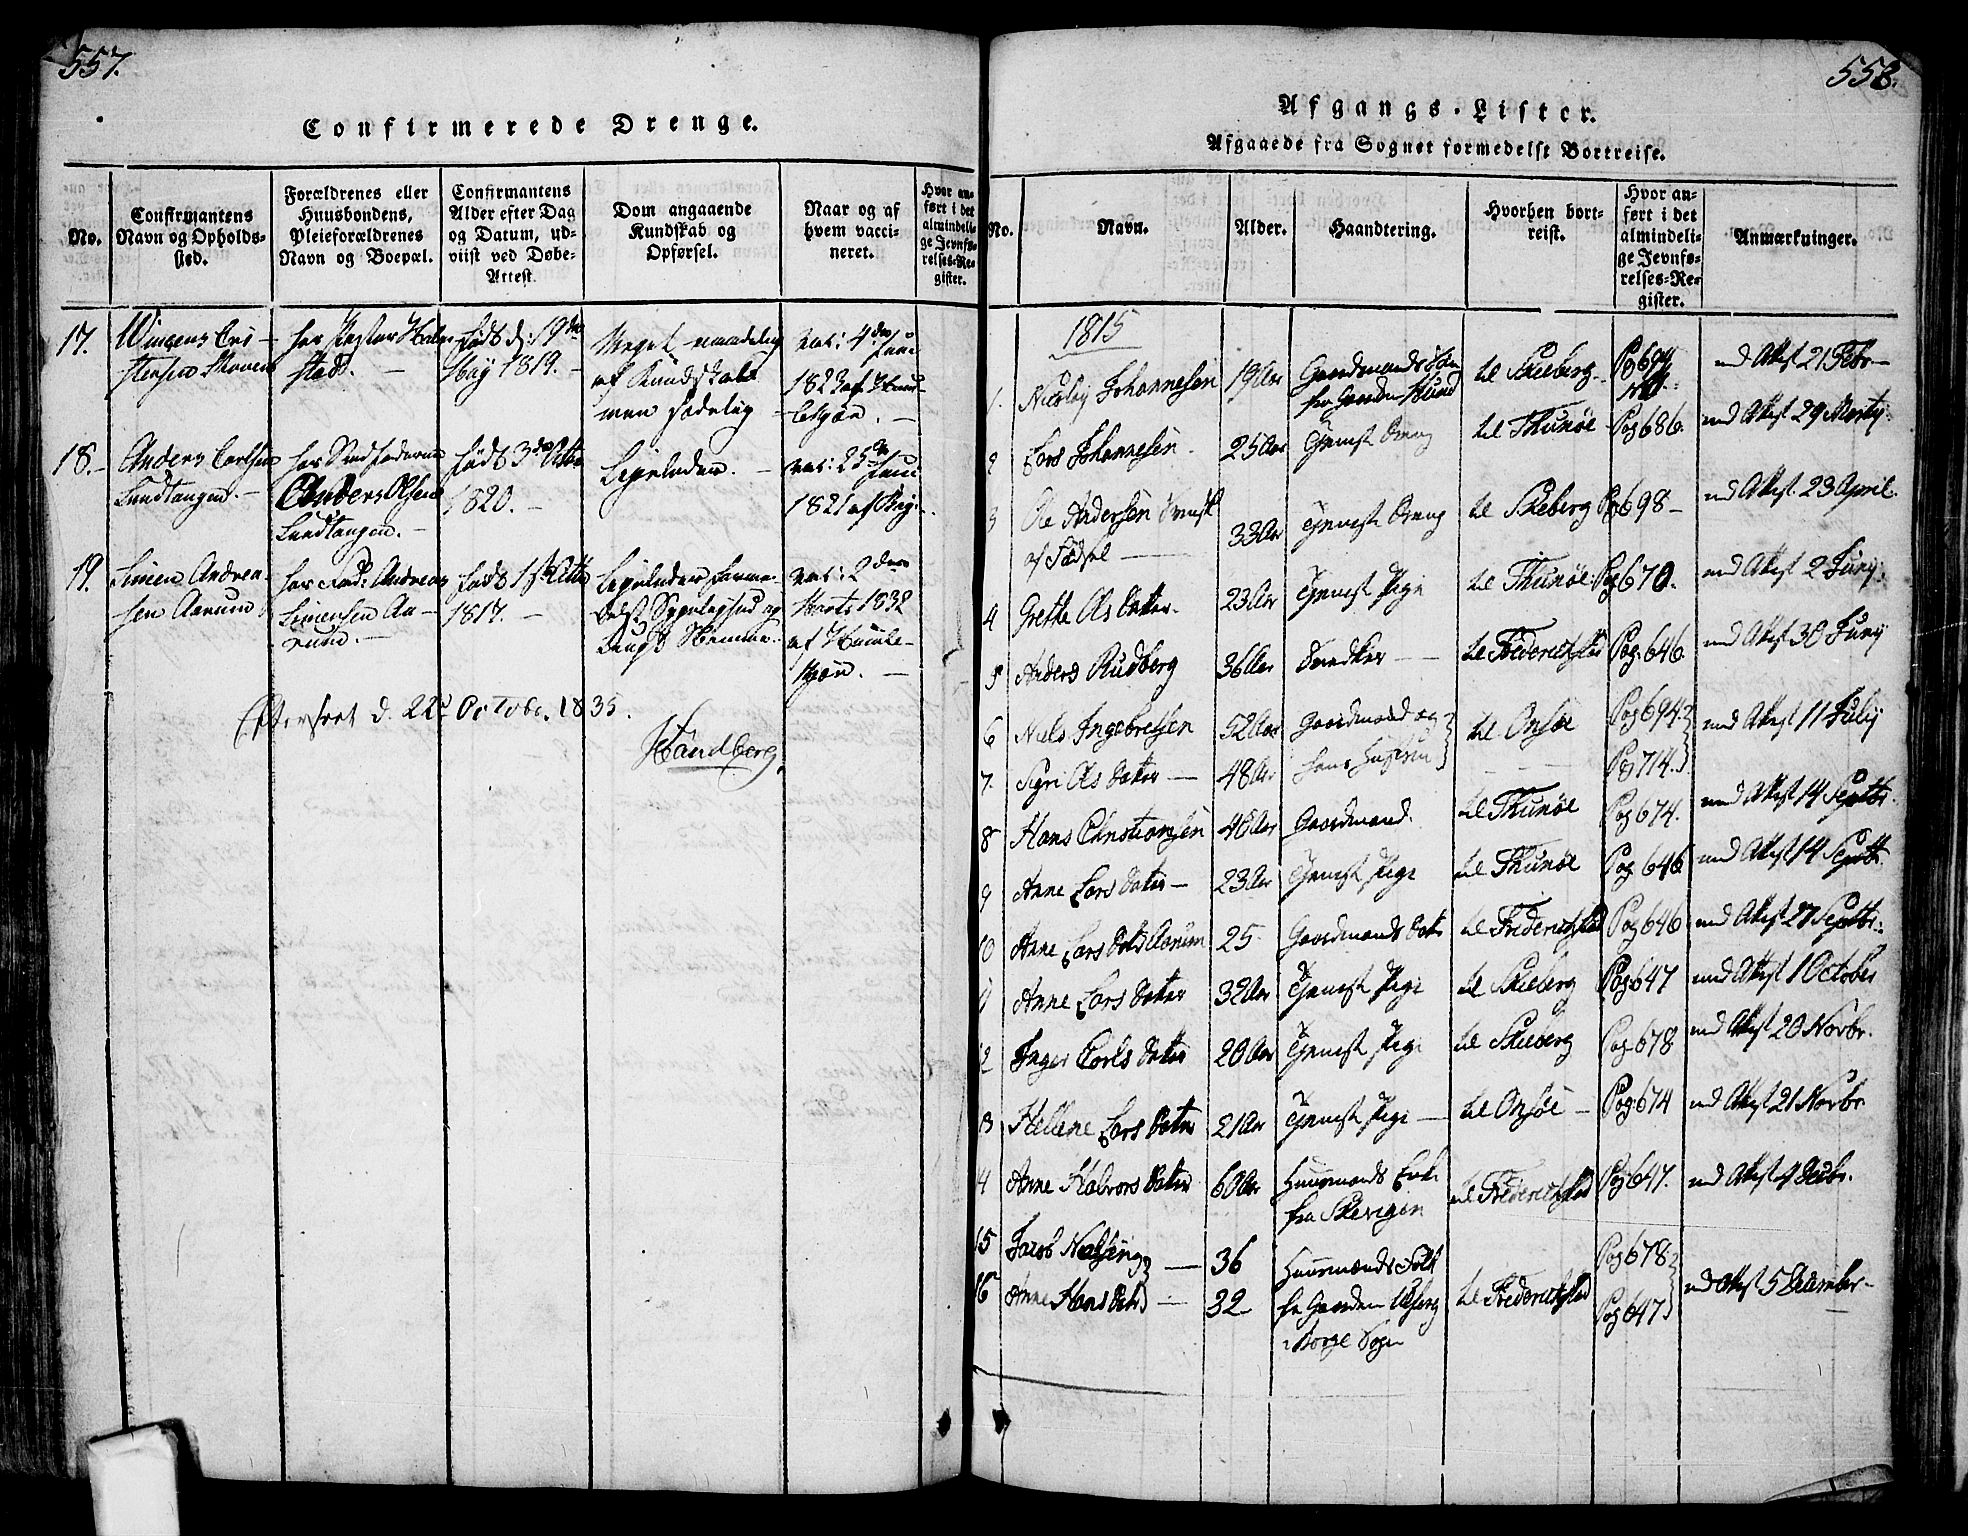 557.
Confirmerede Drenge.
No.
Confirmantens
Navn og Opholds-
sted.
Forældrenes eller
Huusbondens,
Pleieforældrenes
Navn og Boepæl.
Confirmantens
Alder efter Dag
og Datum, ud-
viist ved Døbe-
Attest.
Dom angaaende
Kundskab og
Opførsel.
Naar og af
hvem vacci-
neret.
Hvor an-
ført i det
almindeli-
ge Jevnfø-
relses-Re-
gister.
17.
hos Pastor
stad. -
Født d: 19de
May 1819. -
Meget maadelig
af Kundskab
men sædelig -
vac: 4de Juni
1823 af
18. -
Anders Carlsen
Lundtangen. -
hos
Anders Olsen
Lundtangen. -
født 3de
1820. -
Ligeledes. -
vac: 25de Juni
1821 af
19.
Simen Andrea-
sen Aarum
hos Fad: Andreas
Simensen Aa-
rum. -
født 1ste
1817. -
Ligeledes
vac: 2den
Marts 1832
af
d. 22d October 1835.
558.
Afgangs-Lister.
Afgaaede fra Sognet formedelst Bortreise.
No.
Navn.
Alder.
Haandtering.
Hvorhen bort-
reist.
Hvor an-
ført i det
almindeli-
ge Jevnfø-
relses-Re-
gister.
Anmærkninger.
1815
1. Nicolay Johannesen 19 Aar Gaardmands Søn til Skieberg Pag 694 med Attest 21 Febr -
fra Gaarden Hund
2 Lars Johannesen. 25 Aar Tjeneste Dreng til Thunøe Pag 686. med Attest 29 Marty.
3 Ole Andersen Svensk 33 Aar Tjeneste Dreng til Skieberg Pag 698 - med Attest 23 April.
af Fødsel
4 Grethe Ols Datter. 23 Aar Tjeneste Pige til Thunøe Pag 670. med Attest 2 Juny.
5 Anders Rudberg 36 Aar Snedker - til Friderichstad Pag 646 med Attest 30 Juny
6 Niels Ingebretsen 52 Aar Gaardmand og til Onsøe Pag 694. med Attest 11 July
7. Sigri Ols Datter - 48 Aar hans Hustru Pag 714.
8 Hans Christiansen 46 Aar Gaardmand. til Thunøe Pag 674. med Attest 14 Septbr.
9 Anne Lars Datter - 23 Aar Tjeneste Pige til Thunøe Pag 646 med Attest 14 Septbr.
10 Anne Lars Datr Aarum 25 Gaardmands Datr til Friderichstad Pag 646 med Attest 27 Septbr.
11 Anne Lars Datter 32 Aar Tjeneste Pige til Skieberg Pag 647 med Attest 1 October
12 Inger Carls Datter 20 Aar Tjeneste Pige til Skieberg Pag 678 med Attest 20 Novbr.
13 Hellene Lars Datter 21 Aar Tjeneste Pige - til Onsøe - Pag 674 med Attest 21 Novbr
14 Anne Halvors Datter 60 Aar Huusmands Enke til Friderichstad Pag 647. med Attest 4 Decbr.
fra
15 Jacob - 36 Huusmands Folk Pag 678
16 Anne Hans Datr - 32 - fra Gaarden til Friderichstad Pag 647 med Attest 5 December -
i Borge Sogn